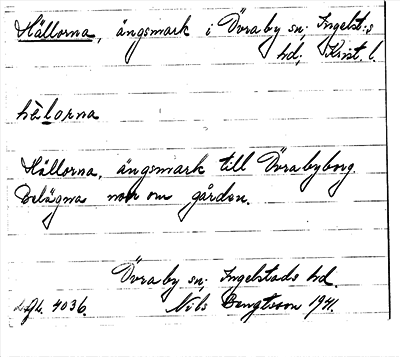 Hällorna, ängsmark i Övraby sn; Ingelst:s
hd, Krist. l.
hèlorna
Hällorna, ängsmark till Övrabyborg.
Belägna norr om gården.
Övraby sn; Ingelstads hd.
4036. Nils Bengtsson 1941.